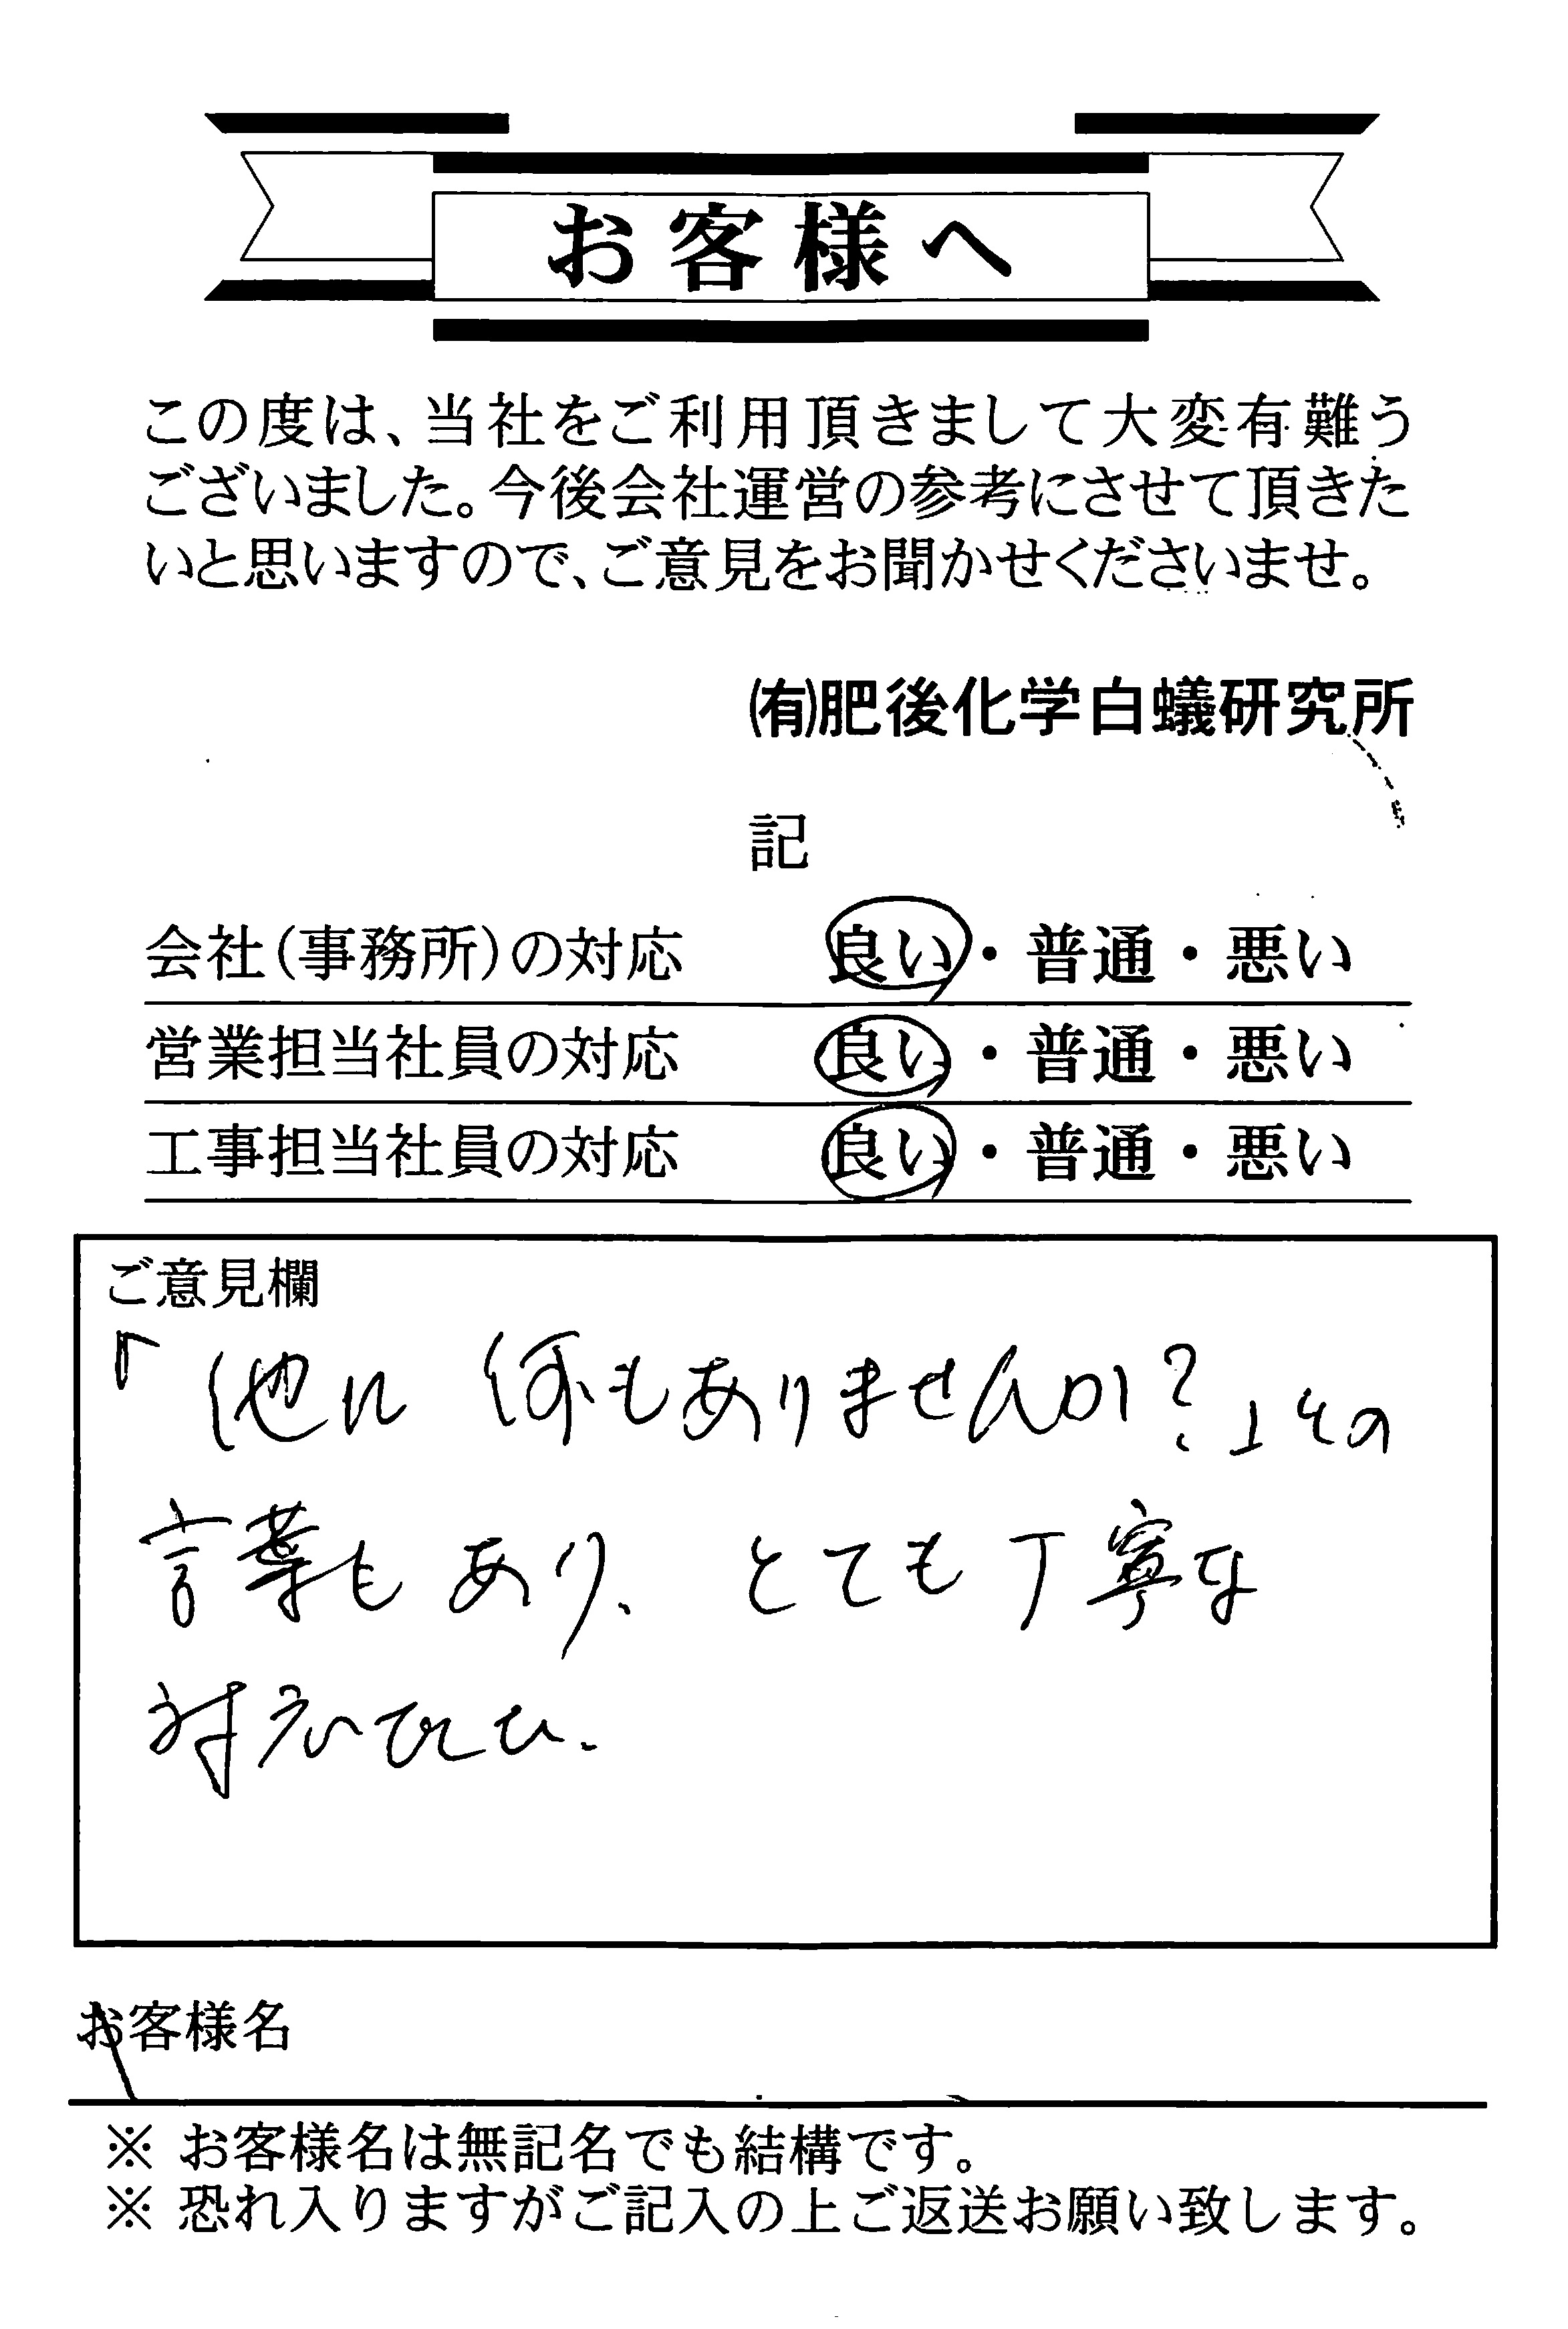 お客様へ
この度は、当社をご利用頂きまして大変有難う
ございました。今後会社運営の参考にさせて頂きた
いと思いますので、ご意見をお聞かせくださいませ。
㈲肥後化学白蟻研究所
記
会社(事務所)の対応 良い・普通・悪い
営業担当社員の対応 良い・普通・悪い
工事担当社員の対応 良い・普通・悪い
ご意見欄
「他に何もありませんか?」その
言葉もあり、とても丁寧な
対応でした.
お客様名
※ お客様名は無記名でも結構です。
※ 恐れ入りますがご記入の上ご返送お願い致します。